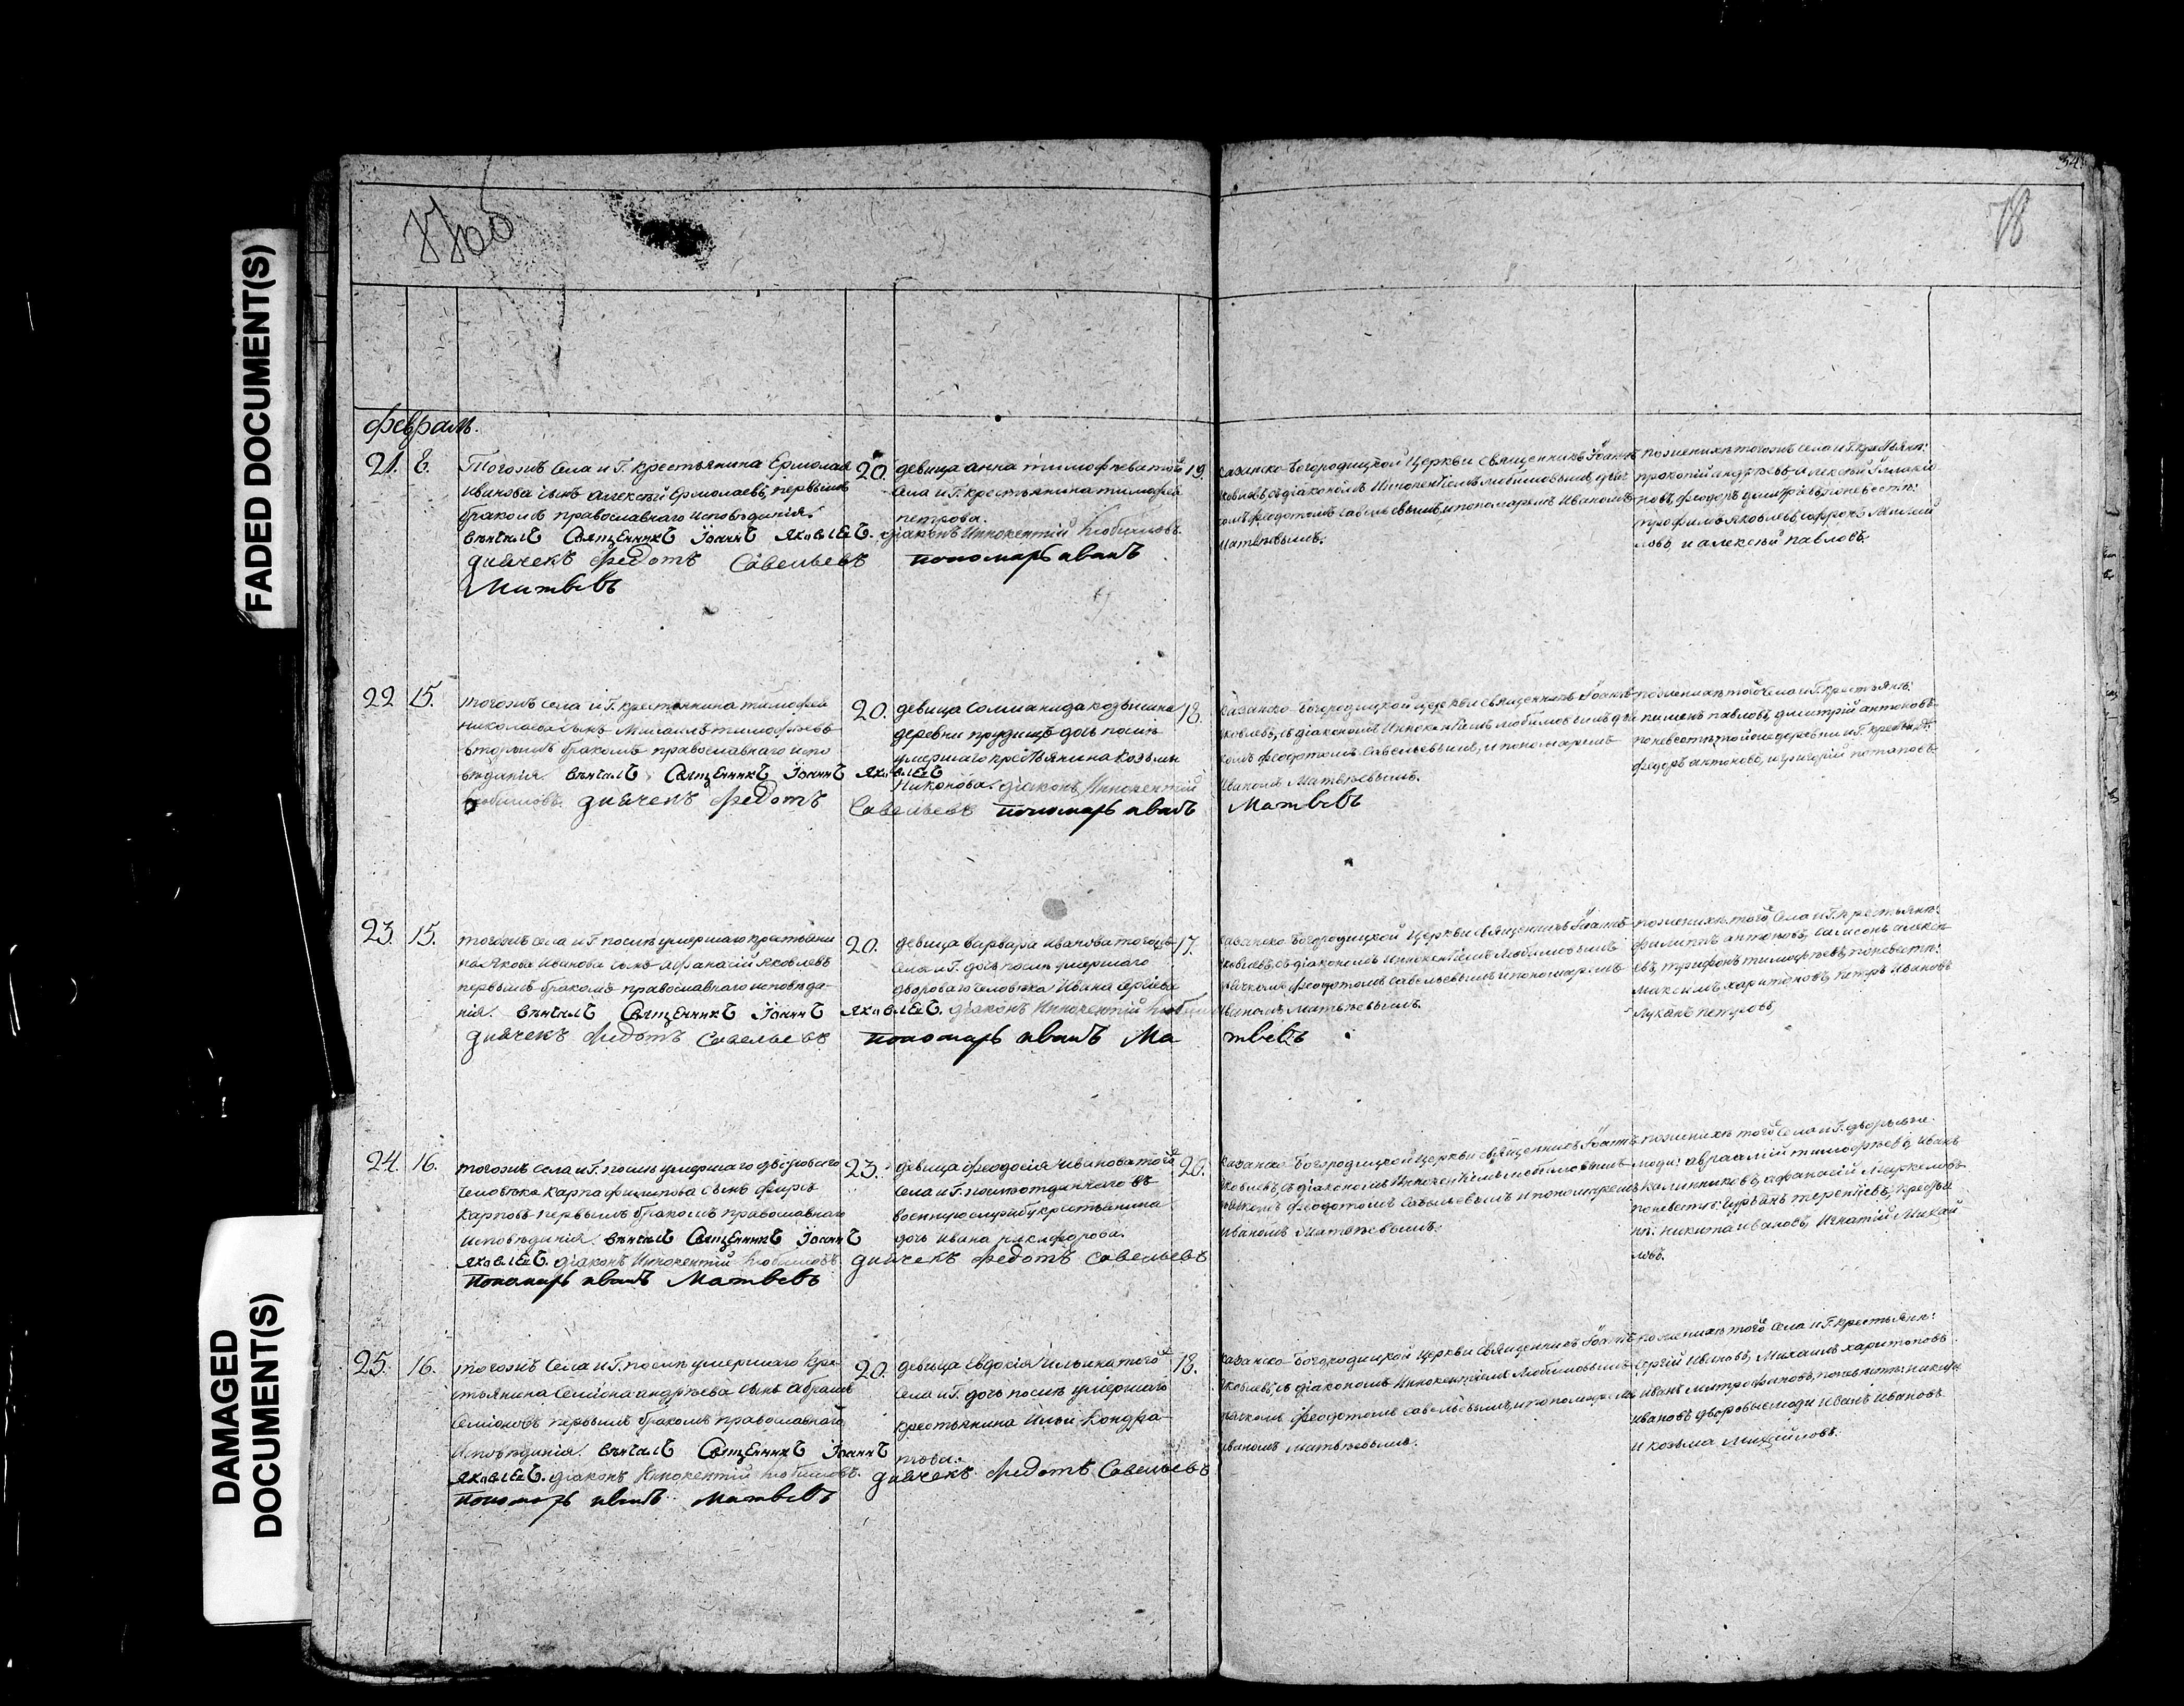 FADED DOCUMENT(S)
DAMAGED
DOCUMENT(S)
54
78
февраль.
21. 8. Тогожъ села и Г. крестьянина Ермолая
Иванова сынъ алексѣй Ермолаевъ, первымъ
бракомъ православнаго исповѣданія.
вѣнчалъ Священникъ Іоаннъ Яковлевъ. діаконъ Иннокентій Любимовъ.
дьячекъ Федотъ Савельевъ пономарь иванъ
Матвѣевъ
20. девица анна тимофеева того 19.
села и Г. крестьянина тимофея
петрова.
казанско-Богородицкой Церкви священникъ Іоаннъ
Яковлевъ, съ діакономъ Иннокентіемъ любимовымъ, дьяч
комъ феодотомъ савельевымъ, и пономаремъ Иваномъ
Матвѣевымъ.
по женихѣ тогожъ села и Г. крестьян:
прокопій андрѣевъ алексѣй
феодоръ дмитріевъ, по невестѣ:
трофимъ яковлевъ, софронъ
и алексѣй павловъ.
22 15. тогожъ села и Г. крестьянина тимофея
николаева сынъ Михаилъ тимофѣевъ
вторымъ бракомъ православнаго испо
вѣданія. вѣнчалъ Священникъ Іоаннъ Яковлевъ
Любимовъ. дьячекъ Федотъ Савельевъ пономарь иванъ Матвѣевъ
20. девица соломанида козьмина 18.
деревни прудищъ дочь послѣ
умершаго крестьянина Козьмы
Никонова. діаконъ Иннокентій
казанско-Богородицкой церкви священникъ Іоаннъ
Яковлевъ, съ діакономъ Иннокентіемъ любимовымъ дья
комъ феодотомъ савельевымъ, и пономаремъ
Иваномъ Матвѣевымъ.
по женихѣ того села и Г. крестьянѣ:
пименъ павловъ, дмитрій антоновъ
по невестѣ, той же деревни и Г. крестьян:
федоръ антоновъ, и григорій потаповъ
23. 15. тогожъ села и Г. послѣ умершаго крестьяни
на Якова Иванова сынъ Афанасій Яковлевъ
первымъ бракомъ православнаго исповѣда-
нія. вѣнчалъ Священникъ Іоаннъ Яковлевъ. діаконъ Иннокентій Любим
дьячекъ Федотъ Савельевъ пономарь иванъ Ма твѣевъ
20. девица варвара иванова тогожъ 17.
села и Г. дочь послѣ умершаго
двороваго человѣка Ивана сергѣева
казанско-Богородицкой Церкви священникъ Іоаннъ
Яковлевъ, съ діакономъ Иннокентіемъ Любимовымъ
дьячкомъ феодотомъ савельевымъ и пономаремъ
Иваномъ Матвѣевымъ.
по женихѣ того села и Г. крестьянѣ:
филиппъ антоновъ, самсонъ алексѣ
евъ, трифонъ тимофѣевъ, по невестѣ:
максимъ харитоновъ, петръ Ивановъ
Лукьянъ петровъ,
24. 16. тогожъ села и Г. послѣ умершаго двороваго
человѣка карпа филипова сынъ фирсъ
карповъ первымъ бракомъ православнаго
исповѣданія. вѣнчалъ Священникъ Іоаннъ
Яковлевъ. діаконъ Иннокентій Любимовъ дьячекъ Федотъ Савельевъ
пономарь иванъ Матвѣевъ
23. девица феодосія иванова того 20.
села и Г. послѣ отданнаго въ
военную службу крестьянина
дочь ивана никифорова.
казанско-Богородицкой Церкви священникъ Іоаннъ
Яковлевъ, съ діакономъ Иннокентіемъ любимовымъ
дьячкомъ феодотомъ савельевымъ и пономаремъ
иваномъ Матвѣевымъ.
по женихѣ того села и Г. дворовые
люди: авраамій тимофѣевъ, иванъ
калинниковъ, афанасій Маркеловъ
по невестѣ: терентіевъ, крестья
нѣ. никита ивановъ, игнатій Михай
ловъ.
25. 16. тогожъ села и Г. послѣ умершаго кре-
стьянина семіона андрѣева сынъ абрамъ
семіоновъ первымъ бракомъ православнаго
исповѣданія. вѣнчалъ Священникъ Іоаннъ
Яковлевъ. діаконъ Иннокентій Любимовъ. дьячекъ Федотъ Савельевъ
пономарь иванъ Матвѣевъ
20. девица Евдокія ильина того 18.
села и Г. дочь послѣ умершаго
крестьянина Ильи Кондра-
тьева.
казанско-Богородицкой Церкви священникъ Іоаннъ
Яковлевъ, съ діакономъ Иннокентіемъ Любимовымъ
дьячкомъ феодотомъ савельевымъ, и пономаремъ
иваномъ матвѣевымъ.
по женихѣ того села и Г. крестьян:
сергій Ивановъ, Михаилъ харитоновъ
иванъ митрофановъ, по невестѣ:
ивановъ дворовые люди иванъ Ивановъ
и козьма михайловъ.